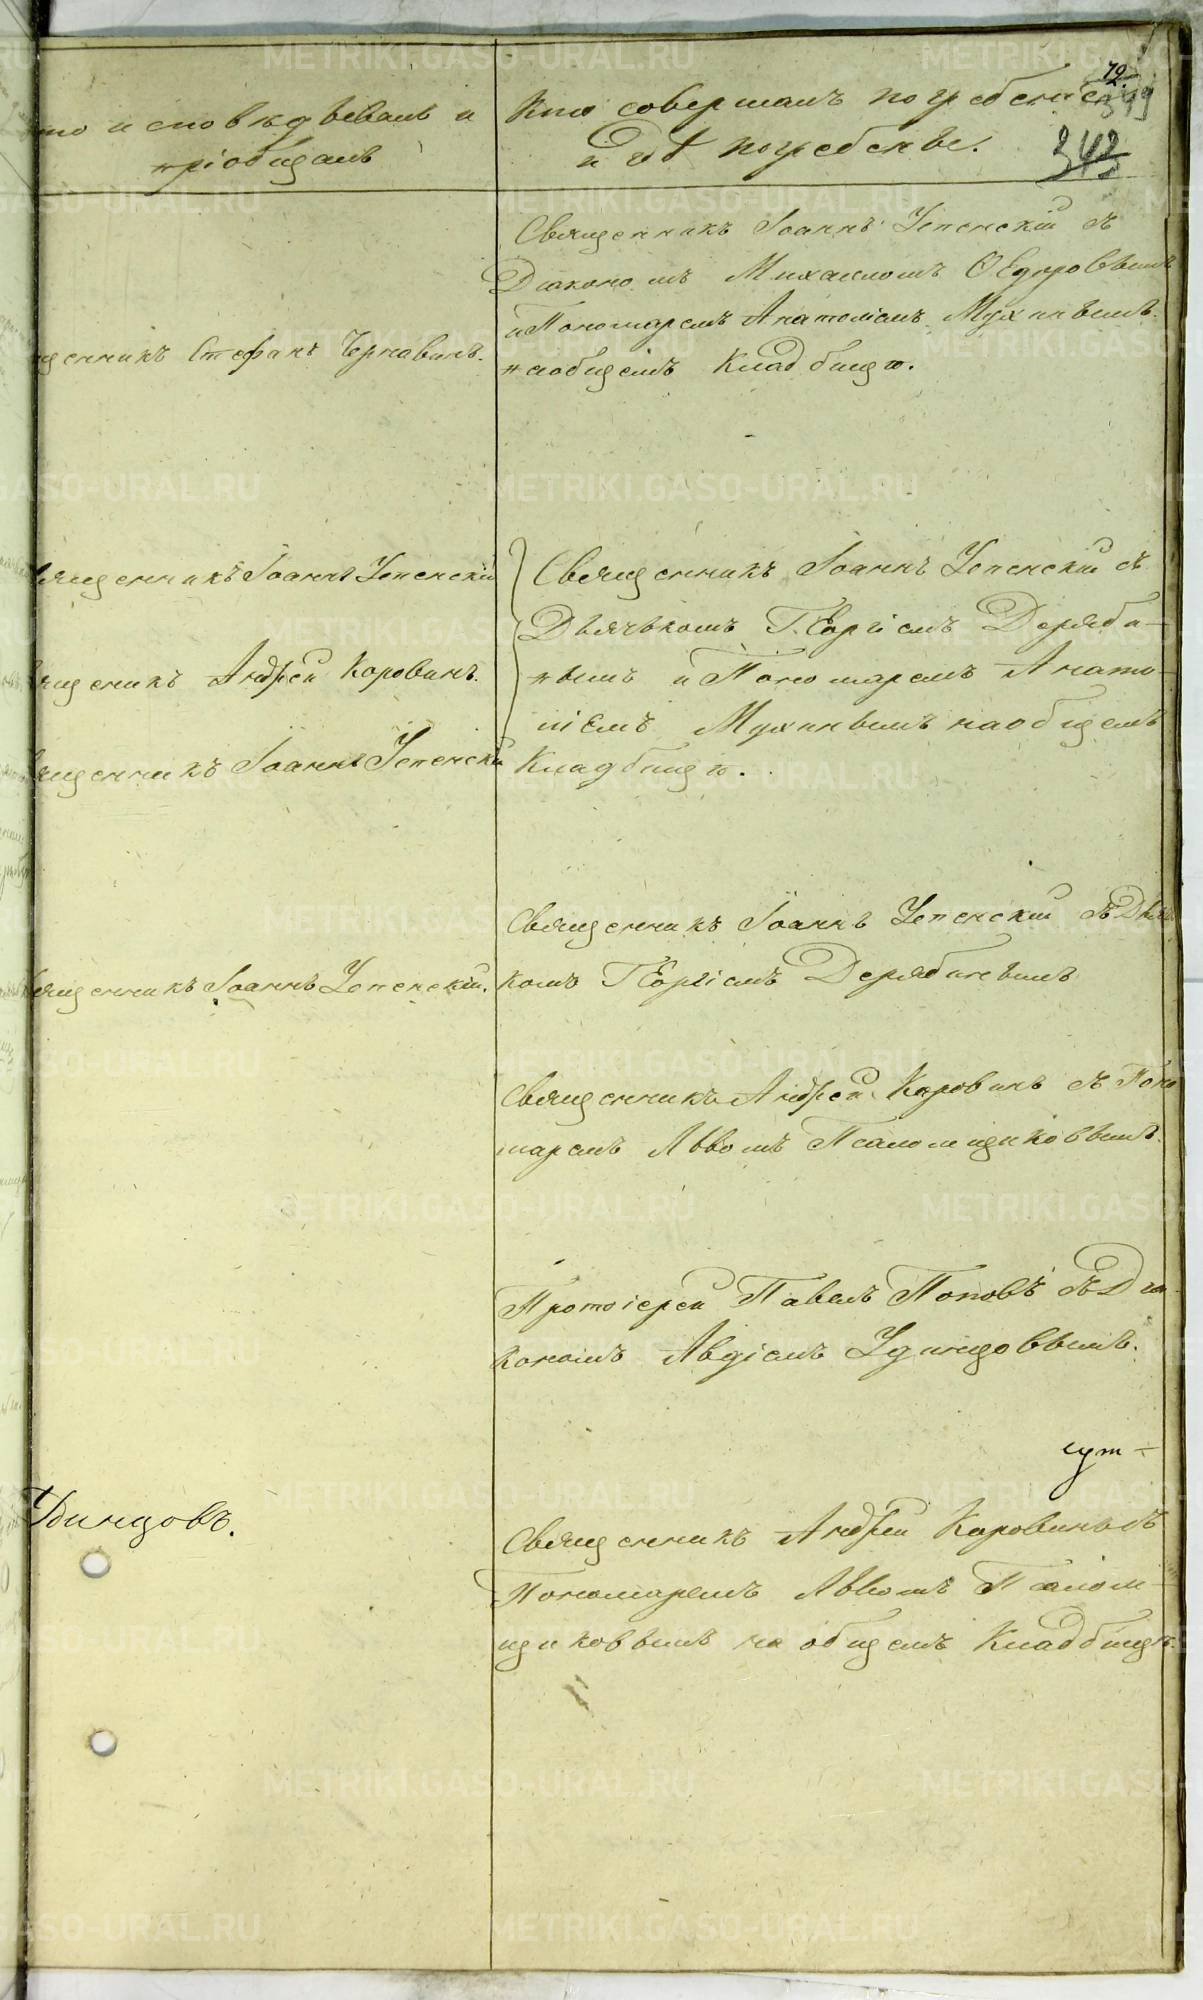 72
399
342
то исповѣдывалъ и
пріобщалъ
Кто совершалъ погребеніе
и гдѣ погребены.
щенникъ Стефанъ Чернавинъ.
Священникъ Іоаннъ Успенскій съ
Діакономъ Михаиломъ Ѳедоровымъ
и Пономаремъ Анатоліемъ Мухинымъ.
на общемъ Кладбищѣ.
вященникъ Іоаннъ Успенскій
вященникъ Андрей Коровинъ.
вященникъ Іоаннъ Успенскій
Священникъ Іоаннъ Успенскій съ
Дьячькомъ Георгіемъ Деряби-
нымъ и Пономаремъ Анато-
ліемъ Мухинымъ на общемъ
Кладбищѣ.
вященникъ Іоаннъ Успенскій.
Священникъ Іоаннъ Успенскій съ Дьяч
комъ Георгіемъ Дерябинымъ
Священникъ Андрей Коровинъ съ Поно
маремъ Львомъ Псаломщиковымъ.
Протоіерей Павелъ Поповъ съ Діа-
кономъ Авдіемъ Удинцовымъ.
Удинцовъ.
Священникъ Андрей Коровинъ съ
Пономаремъ Львомъ Псалом-
щиковымъ на общемъ Кладбищѣ.
METRIKI.GASO-URAL.RU